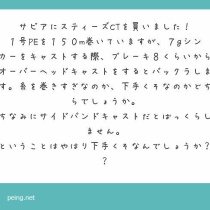 サピアにスティーズCTを買いました！
１号PEを１５０m巻いていますが、７gシン
カーをキャストする際、ブレーキ８くらいから
オーバーヘッドキャストをするとバックラしま
す。糸を巻きすぎなのか、下手くそなのかどち
らでしょうか。
ちなみにサイドバンドキャストだとばっくらし
ません。
ということはやはり下手くそなんでしょうか？
？
peing.net